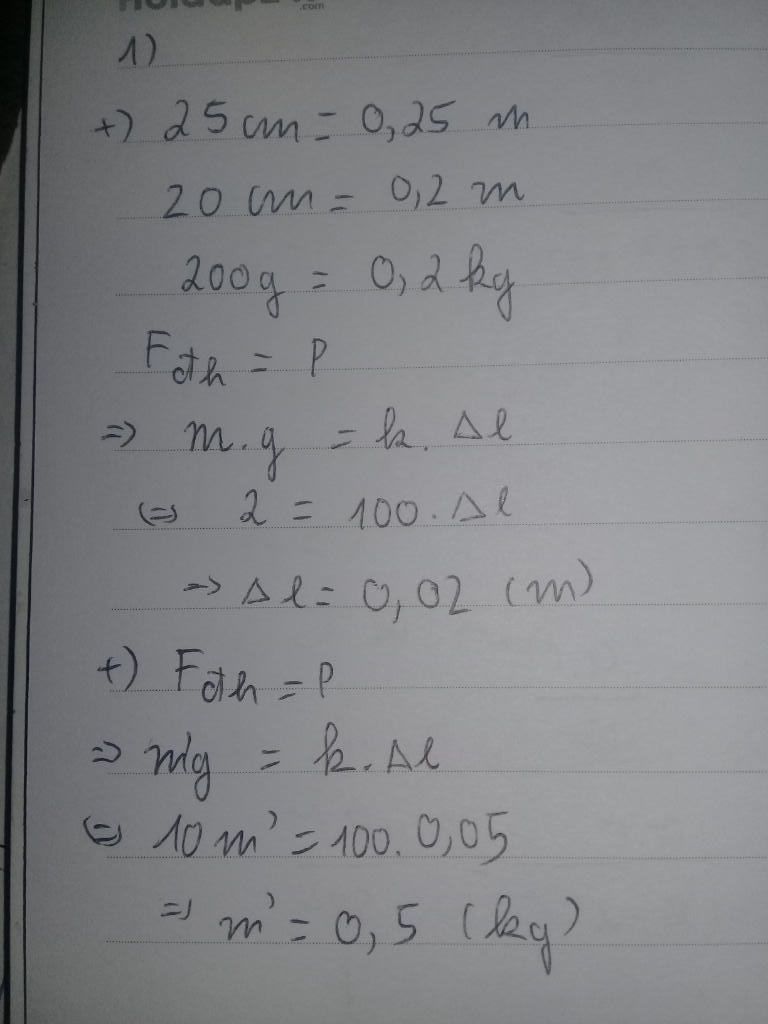 .com
1)
+) 25 cm = 0,25 m
20 cm = 0,2 m
200g = 0,2 kg
Fđh = P
=> m.g = k. Δl
<=> 2 = 100. Δl
=> Δl = 0,02 (m)
+) Fđh = P
=> m'g = k. Δl
<=> 10 m' = 100. 0,05
=> m' = 0,5 (kg)